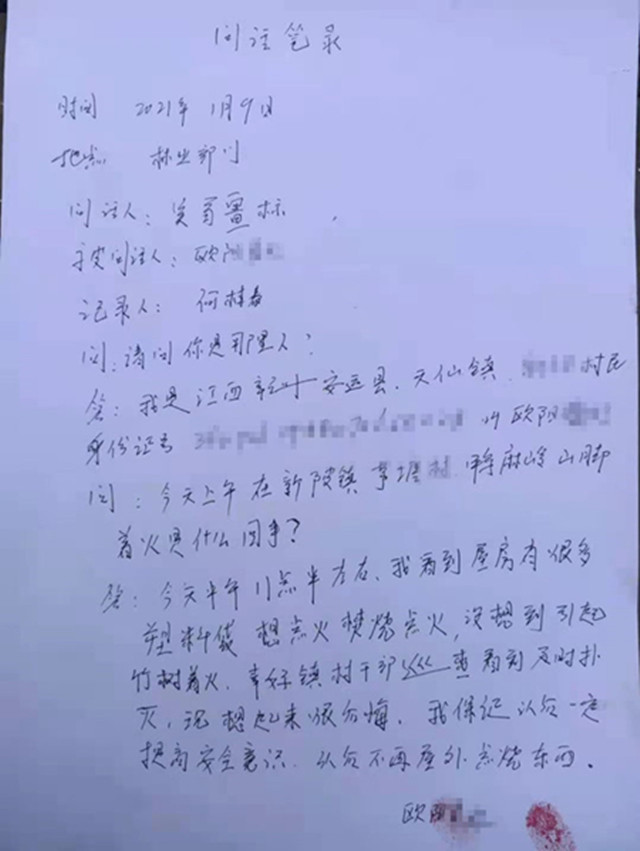 问话笔录
时间 2021年1月9日
地点 林业部门
问话人：
被问话人：欧阳
记录人：何桂春
问：请问你是那里人？
答：我是江西赣州安远县、天仙镇 村民
身份证号 叫欧阳
问：今天上午在新陂镇 山脚
着火是什么回事？
答：今天中午11点半左右、我看到屋房有很多
塑料袋 想点火焚烧点火，没想到引起
竹树着火、幸好镇村干部巡查看到及时扑
灭，现想起来很后悔、我保证以后一定
提高安全意识、以后不再屋外点烧东西。
欧阳